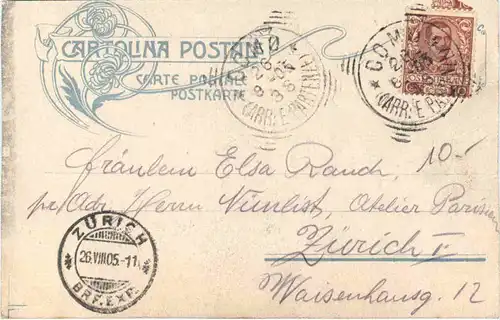 CARTOLINA POSTALE
CARTE POSTALE
POSTKARTE
COMO
(ARR. E PARTENZE)
COMO
(ARR. E PARTENZE)
10.-
Fräulein Elsa Rauch,
pr Adr. Herrn Nünlist, Atelier Parisien
Zürich I
Waisenhausg. 12
ZÜRICH
26.VIII.05.-11
BRF.EXP.